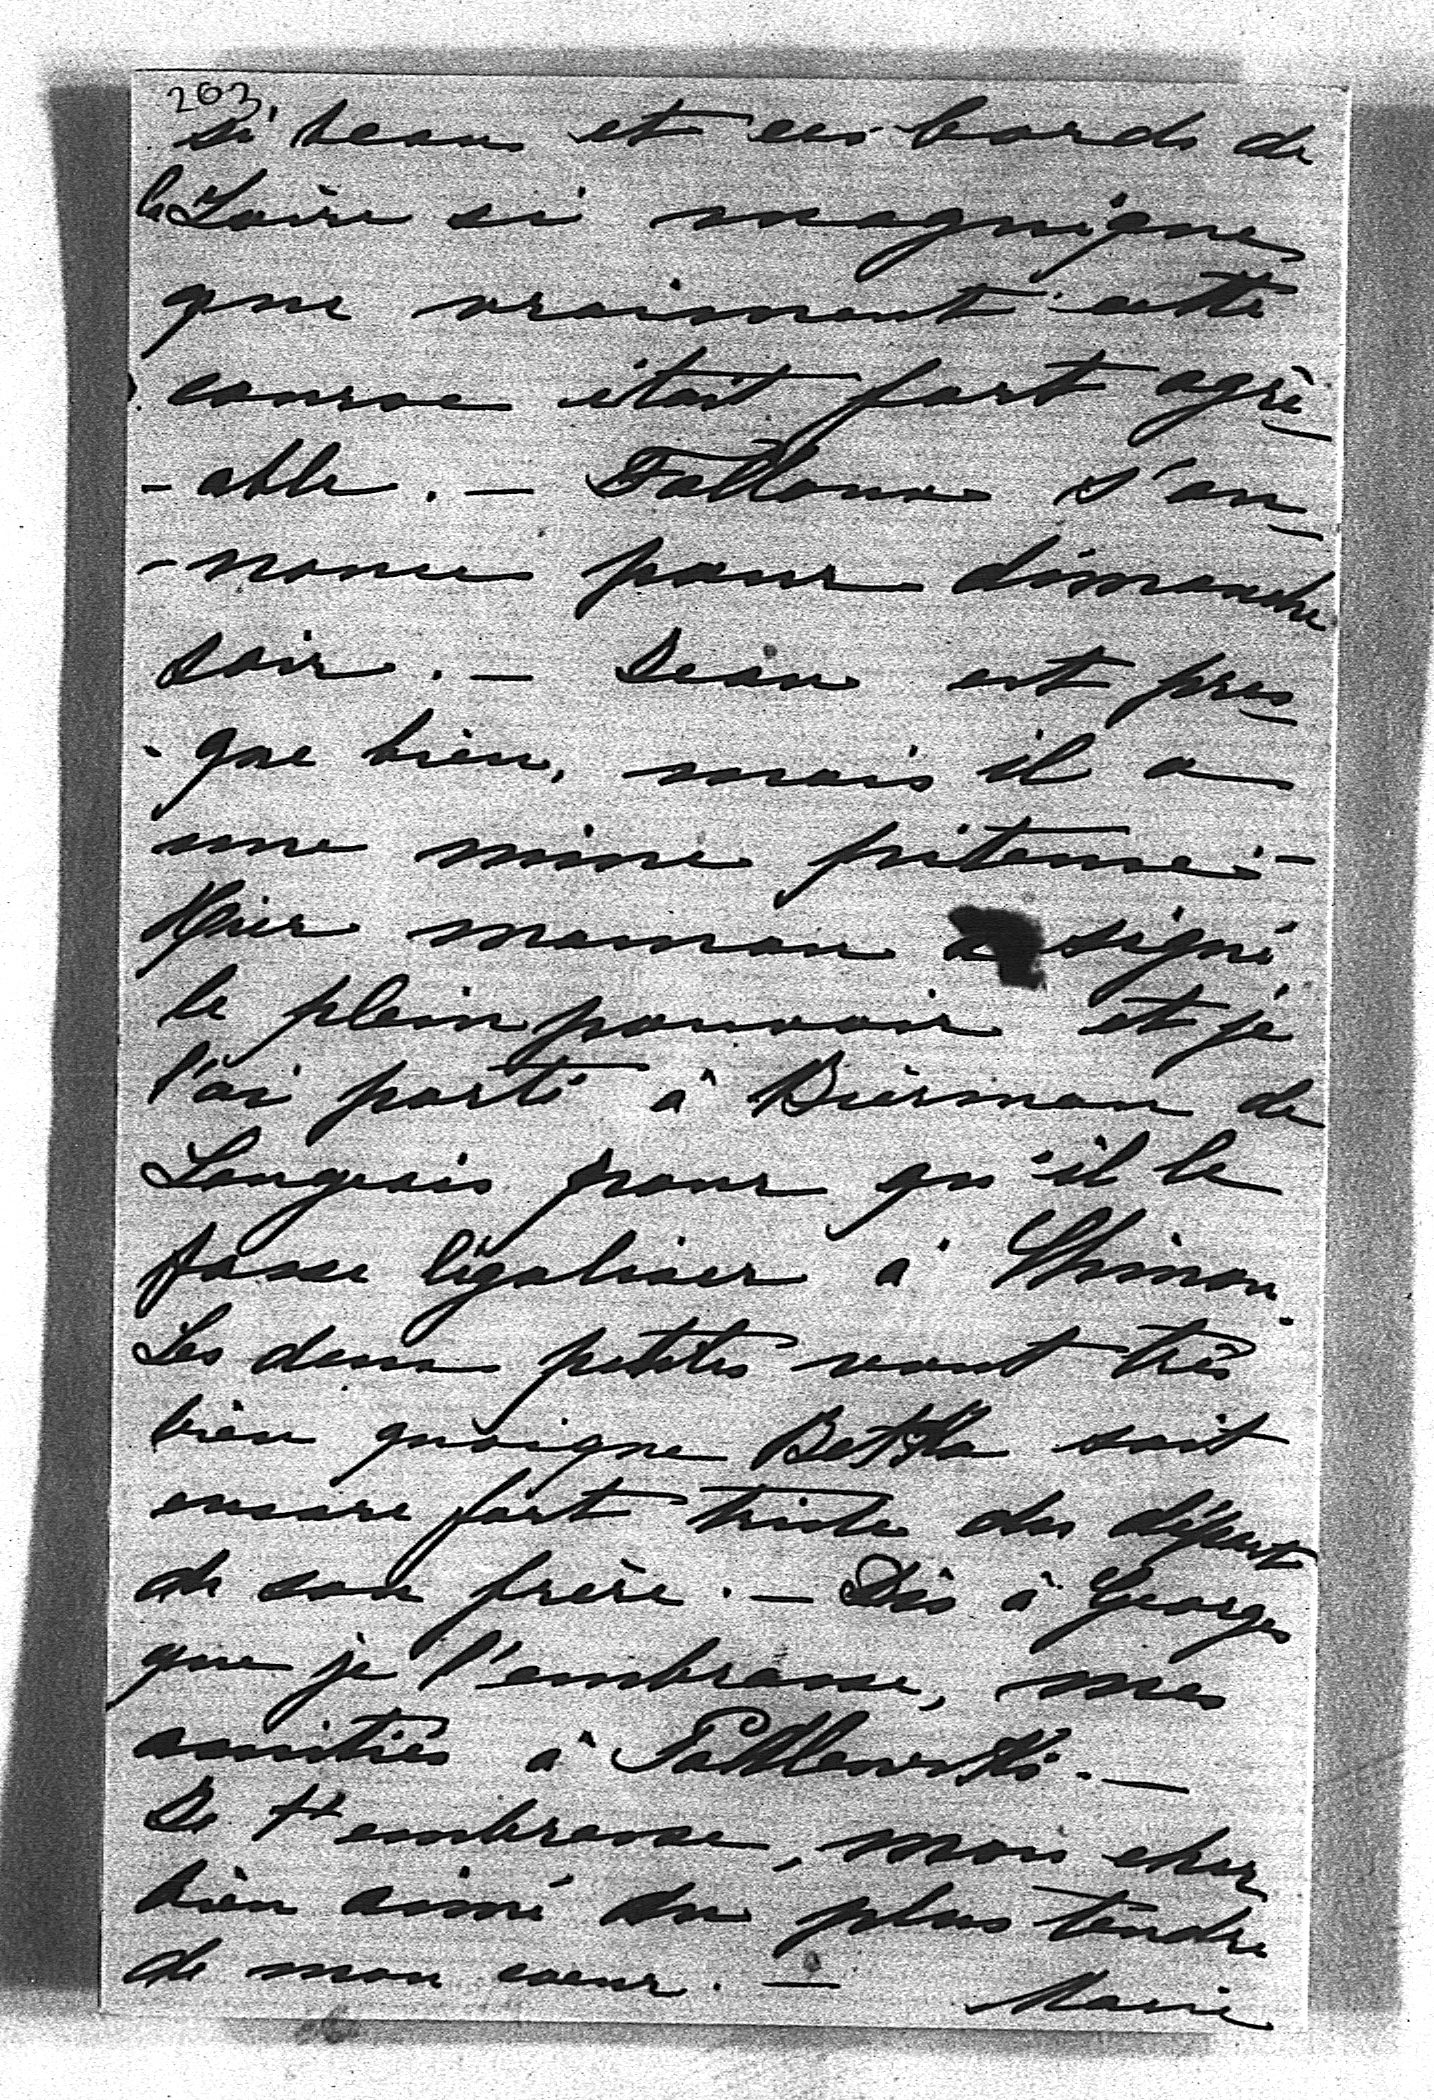 203.
si beau et ces bords de
la Loire si magnique
que vraiment cette
course était fort agré
- able. — Falloux s'an
- nonce pour dimanche
soir. — Jean est pres
- que bien, mais il a
une mine piteuse. —
Hier maman a signé
le plein pouvoir et je
l'ai porté à Bierman de
Langeais pour qu'il le
fasse légaliser à Chinon.
Les deux petites vont très
bien quoique Betka soit
encore fort triste du départ
de son frère. — Dis à Georges
que je l'embrasse, mes
amitiés à —
Je t'embrasse, mon cher
bien aimé du plus tendre
de mon coeur. — Marie